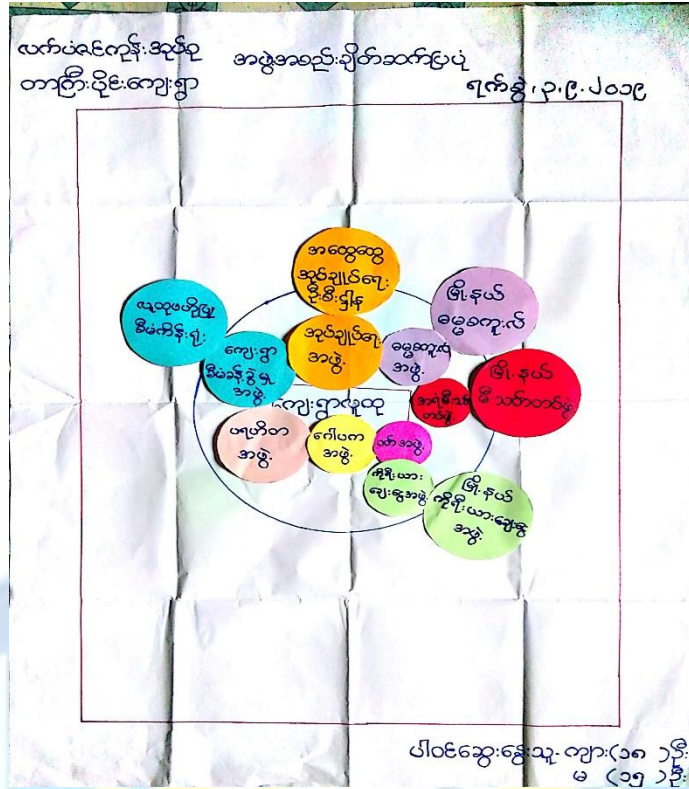 လက်ပံဇင်ကုန်းအုပ်စု
တာကြီးပိုင်းကျေးရွာ
အဖွဲ့အစည်းချိတ်ဆက်ပြပုံ
ရက်စွဲ၊ ၃.၉.၂၀၁၉
အထွေထွေ
အုပ်ချုပ်ရေး
ဦးစီးဌာန
မြို့နယ်
ဓမ္မစကူးလ်
လူထုဗဟိုပြု
စီမံကိန်းရုံး
အုပ်ချုပ်ရေး
အဖွဲ့
ဓမ္မစကူးလ်
အဖွဲ့
ကျေးရွာ
စီမံခန့်ခွဲမှု
အဖွဲ့
မြို့နယ်
မီးသတ်တပ်ဖွဲ့
အရံမီးသတ်
တပ်ဖွဲ့
ကျေးရွာလူထု
ပရဟိတ
အဖွဲ့
ဂေါပက
အဖွဲ့
အဖွဲ့
ကိုရီးယား
ချေးငွေအဖွဲ့
မြို့နယ်
ကိုရီးယားချေးငွေ
အဖွဲ့
ပါဝင်ဆွေးနွေးသူ ကျား (၁၈) ဦး
မ (၁၅) ဦး